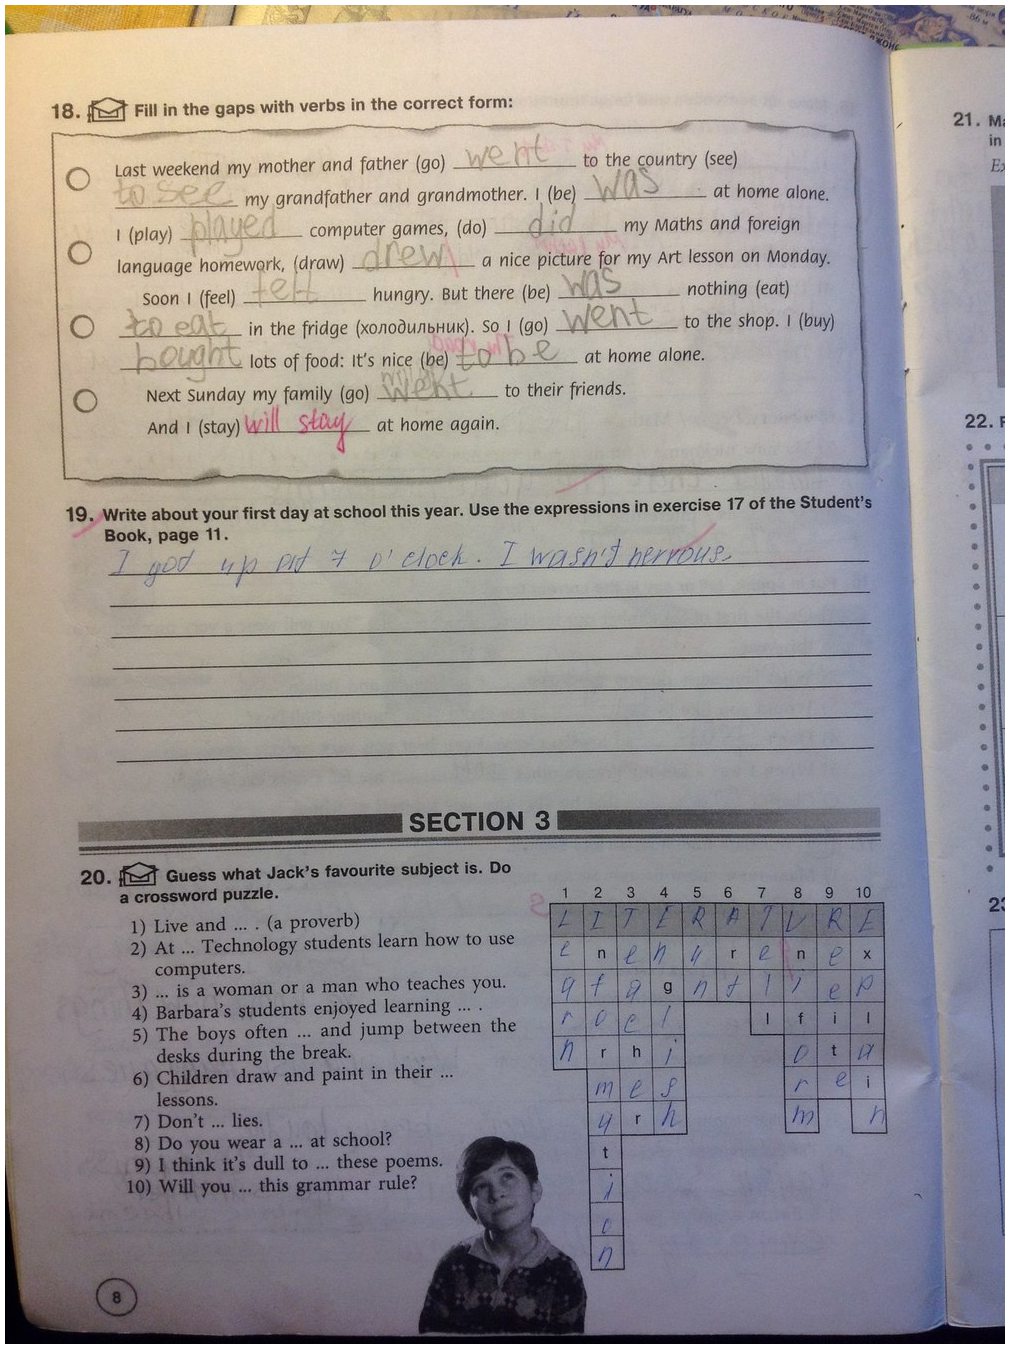 18. Fill in the gaps with verbs in the correct form:
Last weekend my mother and father (go) went to the country (see)
to see my grandfather and grandmother. I (be) was at home alone.
I (play) played computer games, (do) did my Maths and foreign
language homework, (draw) drew a nice picture for my Art lesson on Monday.
Soon I (feel) felt hungry. But there (be) was nothing (eat)
to eat in the fridge (холодильник). So I (go) went to the shop. I (buy)
bought lots of food: It's nice (be) to be at home alone.
Next Sunday my family (go) went to their friends.
And I (stay) will stay at home again.
19. Write about your first day at school this year. Use the expressions in exercise 17 of the Student's
Book, page 11.
I got up at 7 o'clock. I wasn't nervous.
SECTION 3
20. Guess what Jack's favourite subject is. Do
a crossword puzzle.
1) Live and ... . (a proverb)
2) At ... Technology students learn how to use
computers.
3) ... is a woman or a man who teaches you.
4) Barbara's students enjoyed learning ... .
5) The boys often ... and jump between the
desks during the break.
6) Children draw and paint in their ...
lessons.
7) Don't ... lies.
8) Do you wear a ... at school?
9) I think it's dull to ... these poems.
10) Will you ... this grammar rule?
1 2 3 4 5 6 7 8 9 10
L I T E R A T U R E
e n e n u r e n e x
a f a g n t l i c p
r o c l l f i l
n r h i o t a
m e s r e i
a r h m n
t
i
o
n
8
21.
in
22.